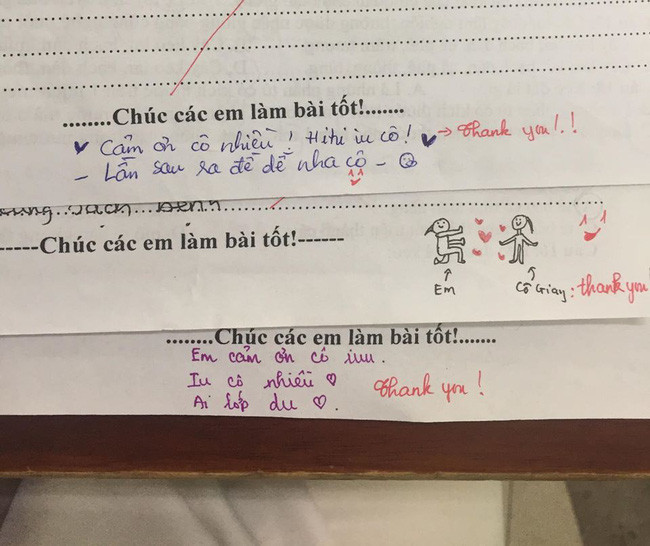 .........Chúc các em làm bài tốt!.......
Cảm ơn cô nhiều! Hihi iu cô! → Thank you!!
- Lần sau ra đề dễ nha cô -
-----Chúc các em làm bài tốt!------
Em Cô Giay: thank you!
.........Chúc các em làm bài tốt!.......
Em cảm ơn cô iuu.
Iu cô nhiều ♡ Thank you!
Ai lớp du ♡.